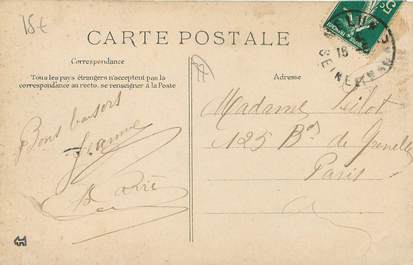 15€
CARTE POSTALE
Correspondance
Tous les pays étrangers n'acceptent pas la
correspondance au recto. se renseigner à la Poste
Adresse
Bons baisers
Jeanne
Madame
125 Bd de Grenelle
Paris
SEINE